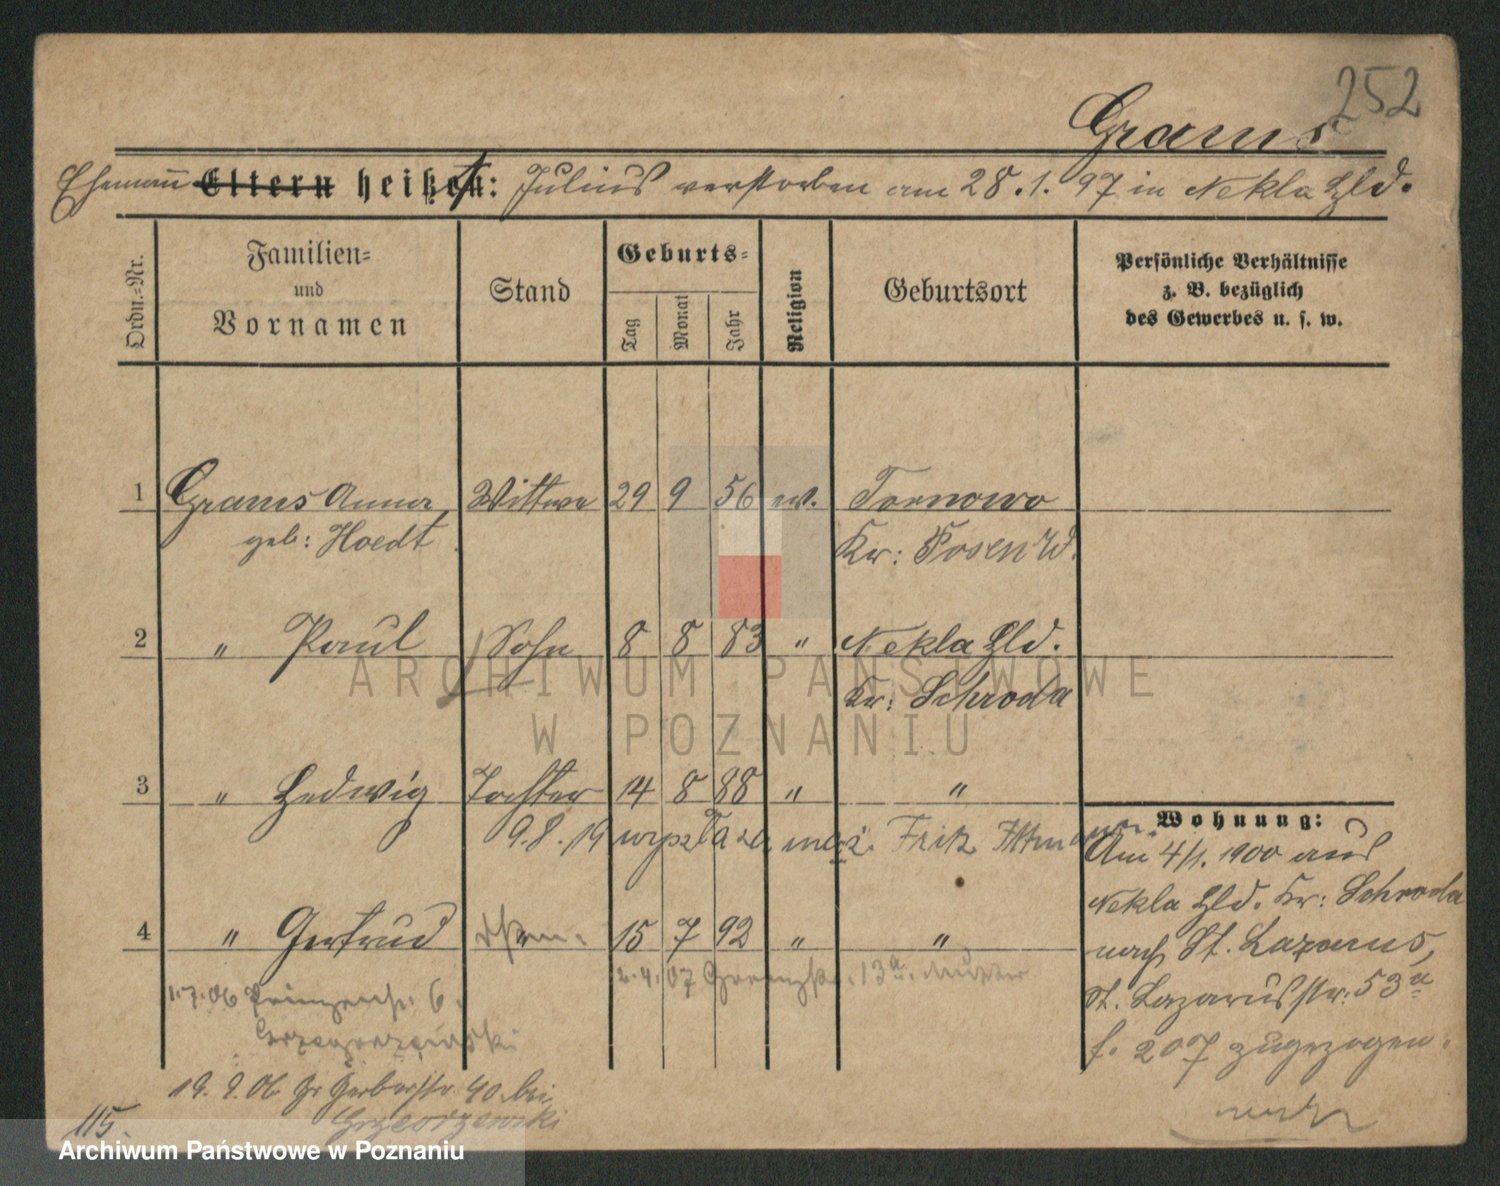 252
Grams
Ehemann Eltern heißen: Julius verstorben am 28.1.97 in Nekla Hld.
Ordn.-Nr.
Familien-
und
Vornamen
Stand
Geburts-
Tag
Monat
Jahr
Religion
Geburtsort
Persönliche Verhältnisse
z. B. bezüglich
des Gewerbes u. s. w.
1 Grams Anna Wittwe 29 9 56 ev. Tornowo
geb: Hoedt Kr: Posen W.
2 " Paul Sohn 8 8 83 " Nekla Hld.
Kr: Schroda
3 " Hedwig Tochter 14 8 88 " "
9.8.19 wyszła za męż. Fritz
4 " Gertrud 15 7 92 " "
2.4.07 13a. Mutter
1.7.06 Prinzenstr. 6.
19.9.06 Gr Gerberstr 40 bei
Grzegorzewski
Wohnung:
Am 4/1. 1900 aus
Nekla Hld. Kr: Schroda
nach St. Lazarus,
St. Lazarusstr: 53a
f. 207 zugezogen.
115.
ARCHIWUM PAŃSTWOWE
W POZNANIU
Archiwum Państwowe w Poznaniu